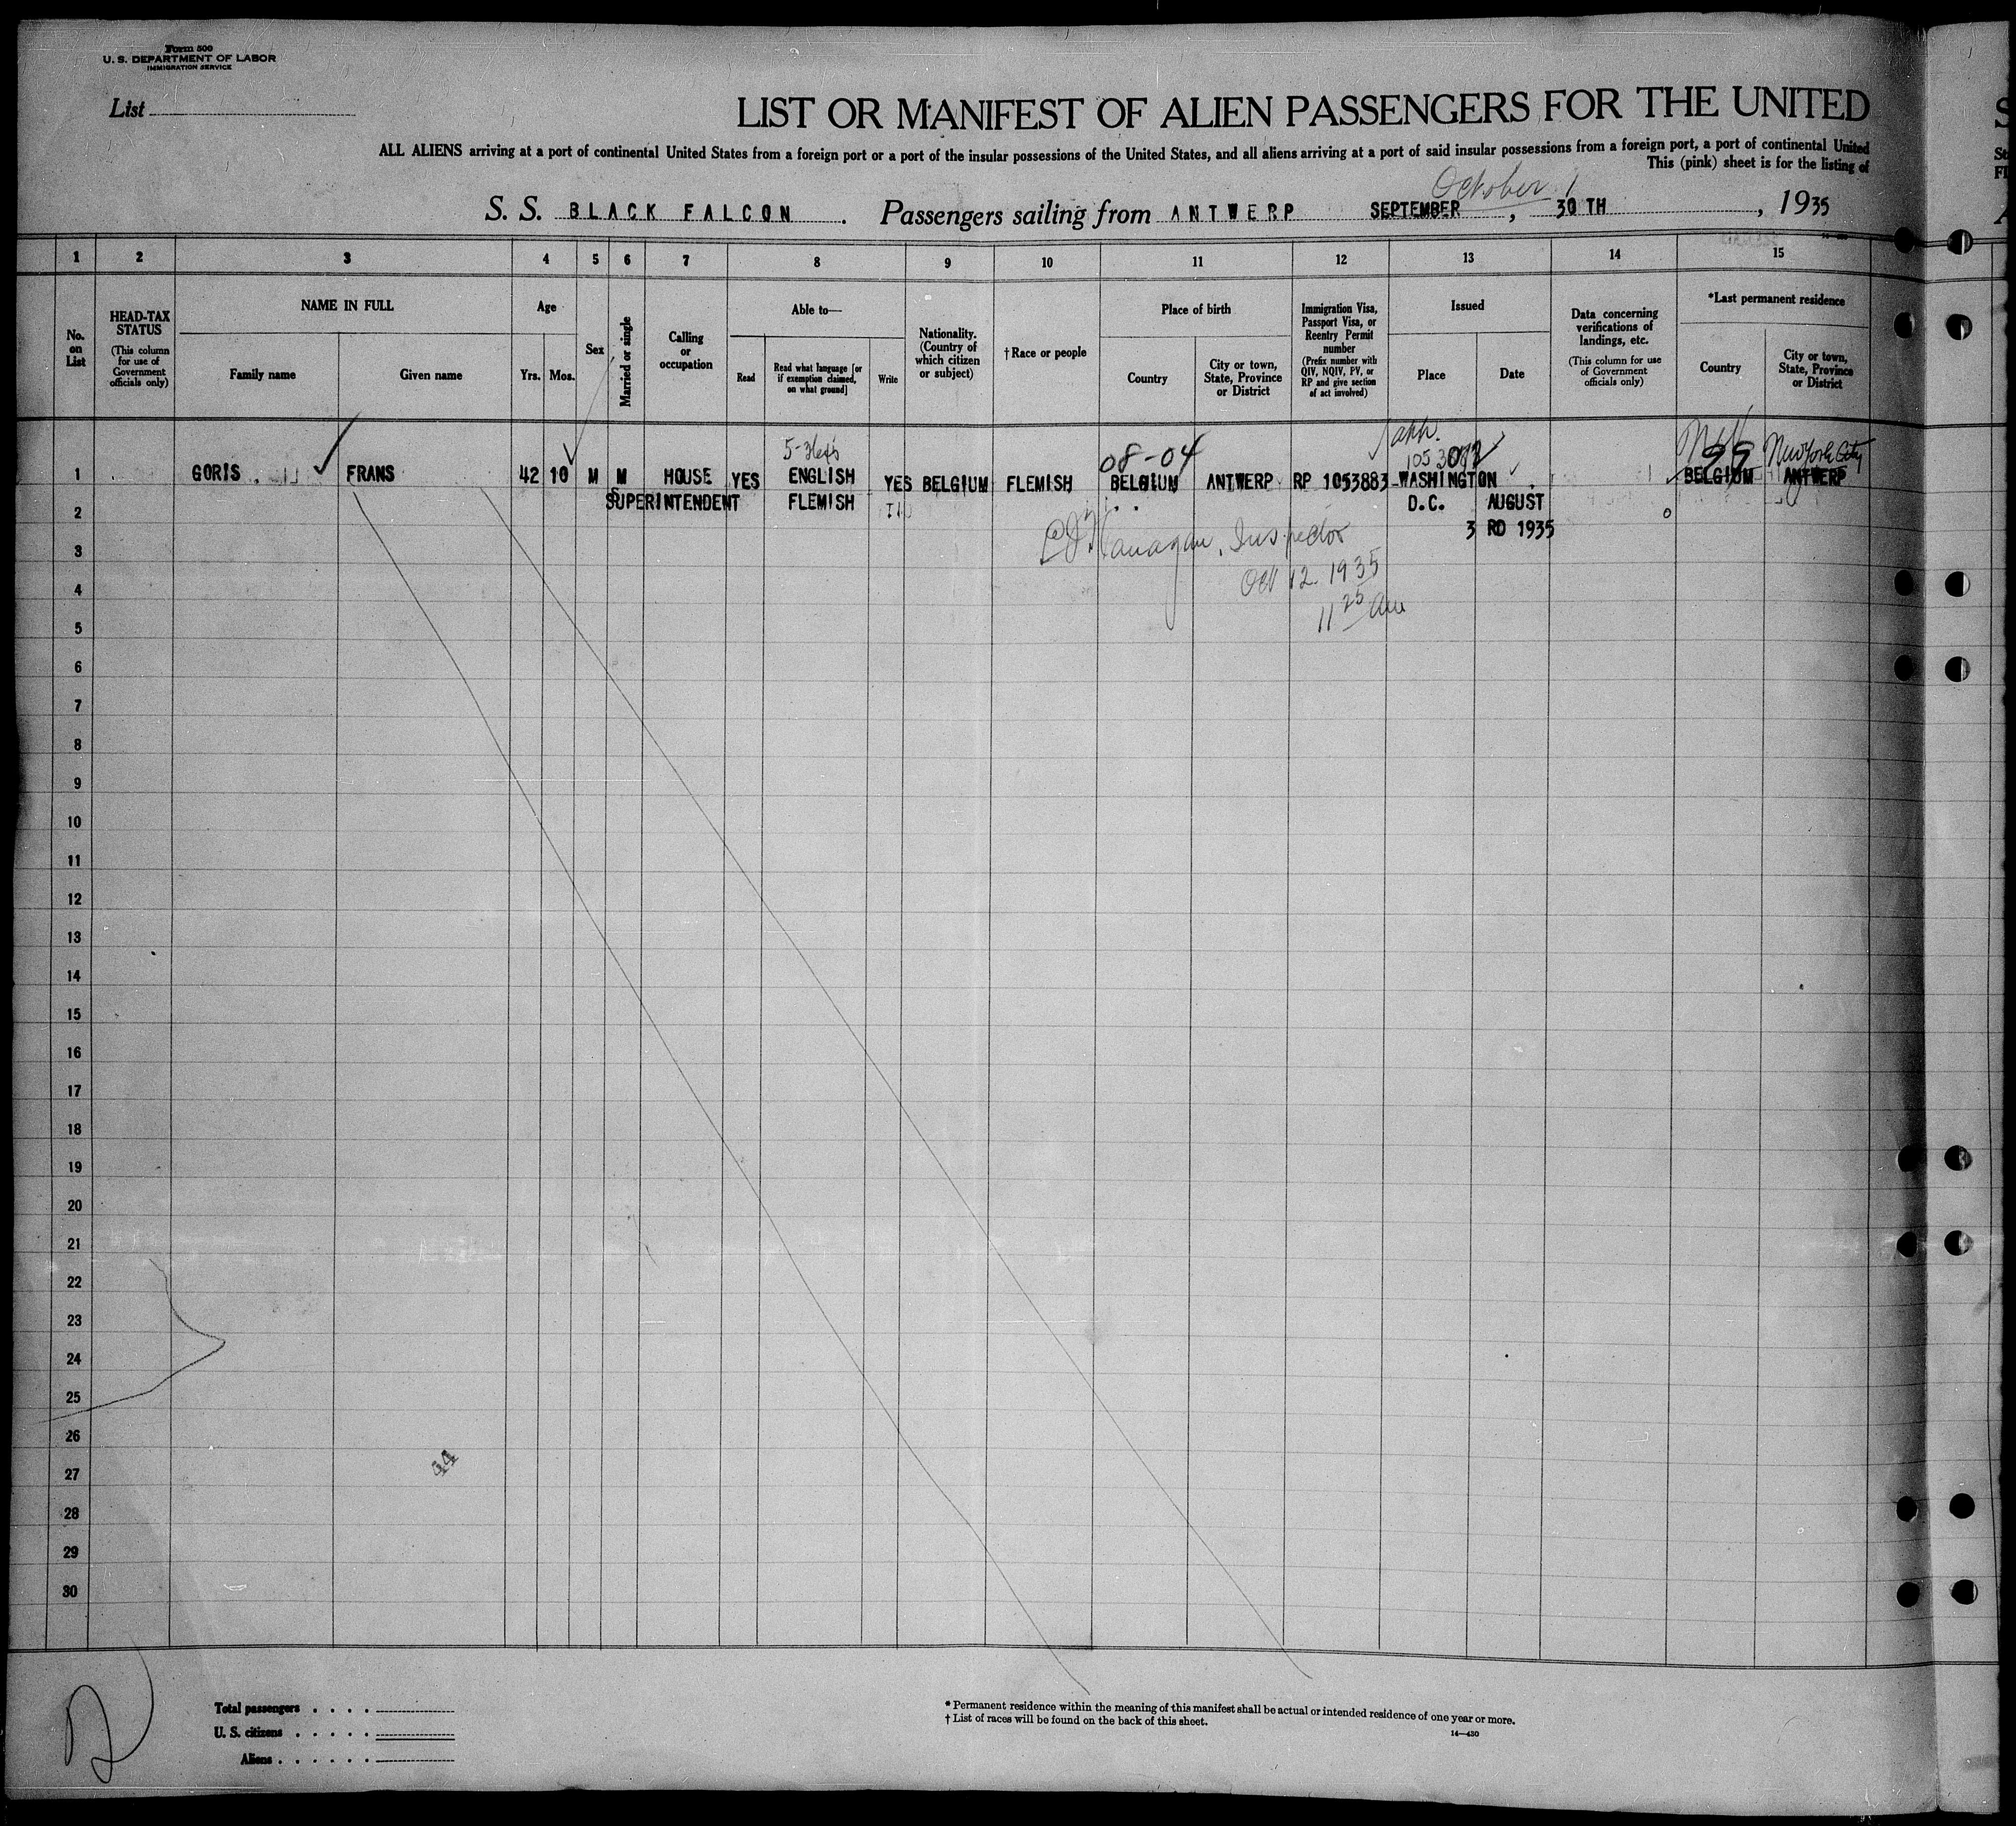 Form 500
U. S. DEPARTMENT OF LABOR
IMMIGRATION SERVICE
List
LIST OR MANIFEST OF ALIEN PASSENGERS FOR THE UNITED
ALL ALIENS arriving at a port of continental United States from a foreign port or a port of the insular possessions of the United States, and all aliens arriving at a port of said insular possessions from a foreign port, a port of continental United
This (pink) sheet is for the listing of
October 1
S. S. BLACK FALCON . Passengers sailing from ANTWERP SEPTEMBER , 30 TH , 1935
1 2 3 4 5 6 7 8 9 10 11 12 13 14 15
No. on List
HEAD-TAX STATUS
(This column for use of Government officials only)
NAME IN FULL
Family name
Given name
Age
Yrs. Mos.
Sex
Married or single
Calling or occupation
Able to—
Read
Read what language [or if exemption claimed, on what ground]
Write
Nationality. (Country of which citizen or subject)
† Race or people
Place of birth
Country
City or town, State, Province or District
Immigration Visa, Passport Visa, or Reentry Permit number
(Prefix number with QIV, NQIV, PV, or RP and give section of act involved)
Issued
Place
Date
Data concerning verifications of landings, etc.
(This column for use of Government officials only)
*Last permanent residence
Country
City or town, State, Province or District
08-04
99
New York City
1 GORIS FRANS 42 10 M M HOUSE YES ENGLISH YES BELGIUM FLEMISH BELGIUM ANTWERP RP 1053883 WASHINGTON BELGIUM ANTWERP
SUPERINTENDENT FLEMISH D.C. AUGUST
2
3 RD 1935
Inspector
3
Oct 12 1935
4
11 25 am
5
6
7
8
9
10
11
12
13
14
15
16
17
18
19
20
21
22
23
24
25
26
27
28
29
30
44
2
Total passengers . . . .
U. S. citizens . . . . .
Aliens . . . . . .
* Permanent residence within the meaning of this manifest shall be actual or intended residence of one year or more.
† List of races will be found on the back of this sheet.
14—430